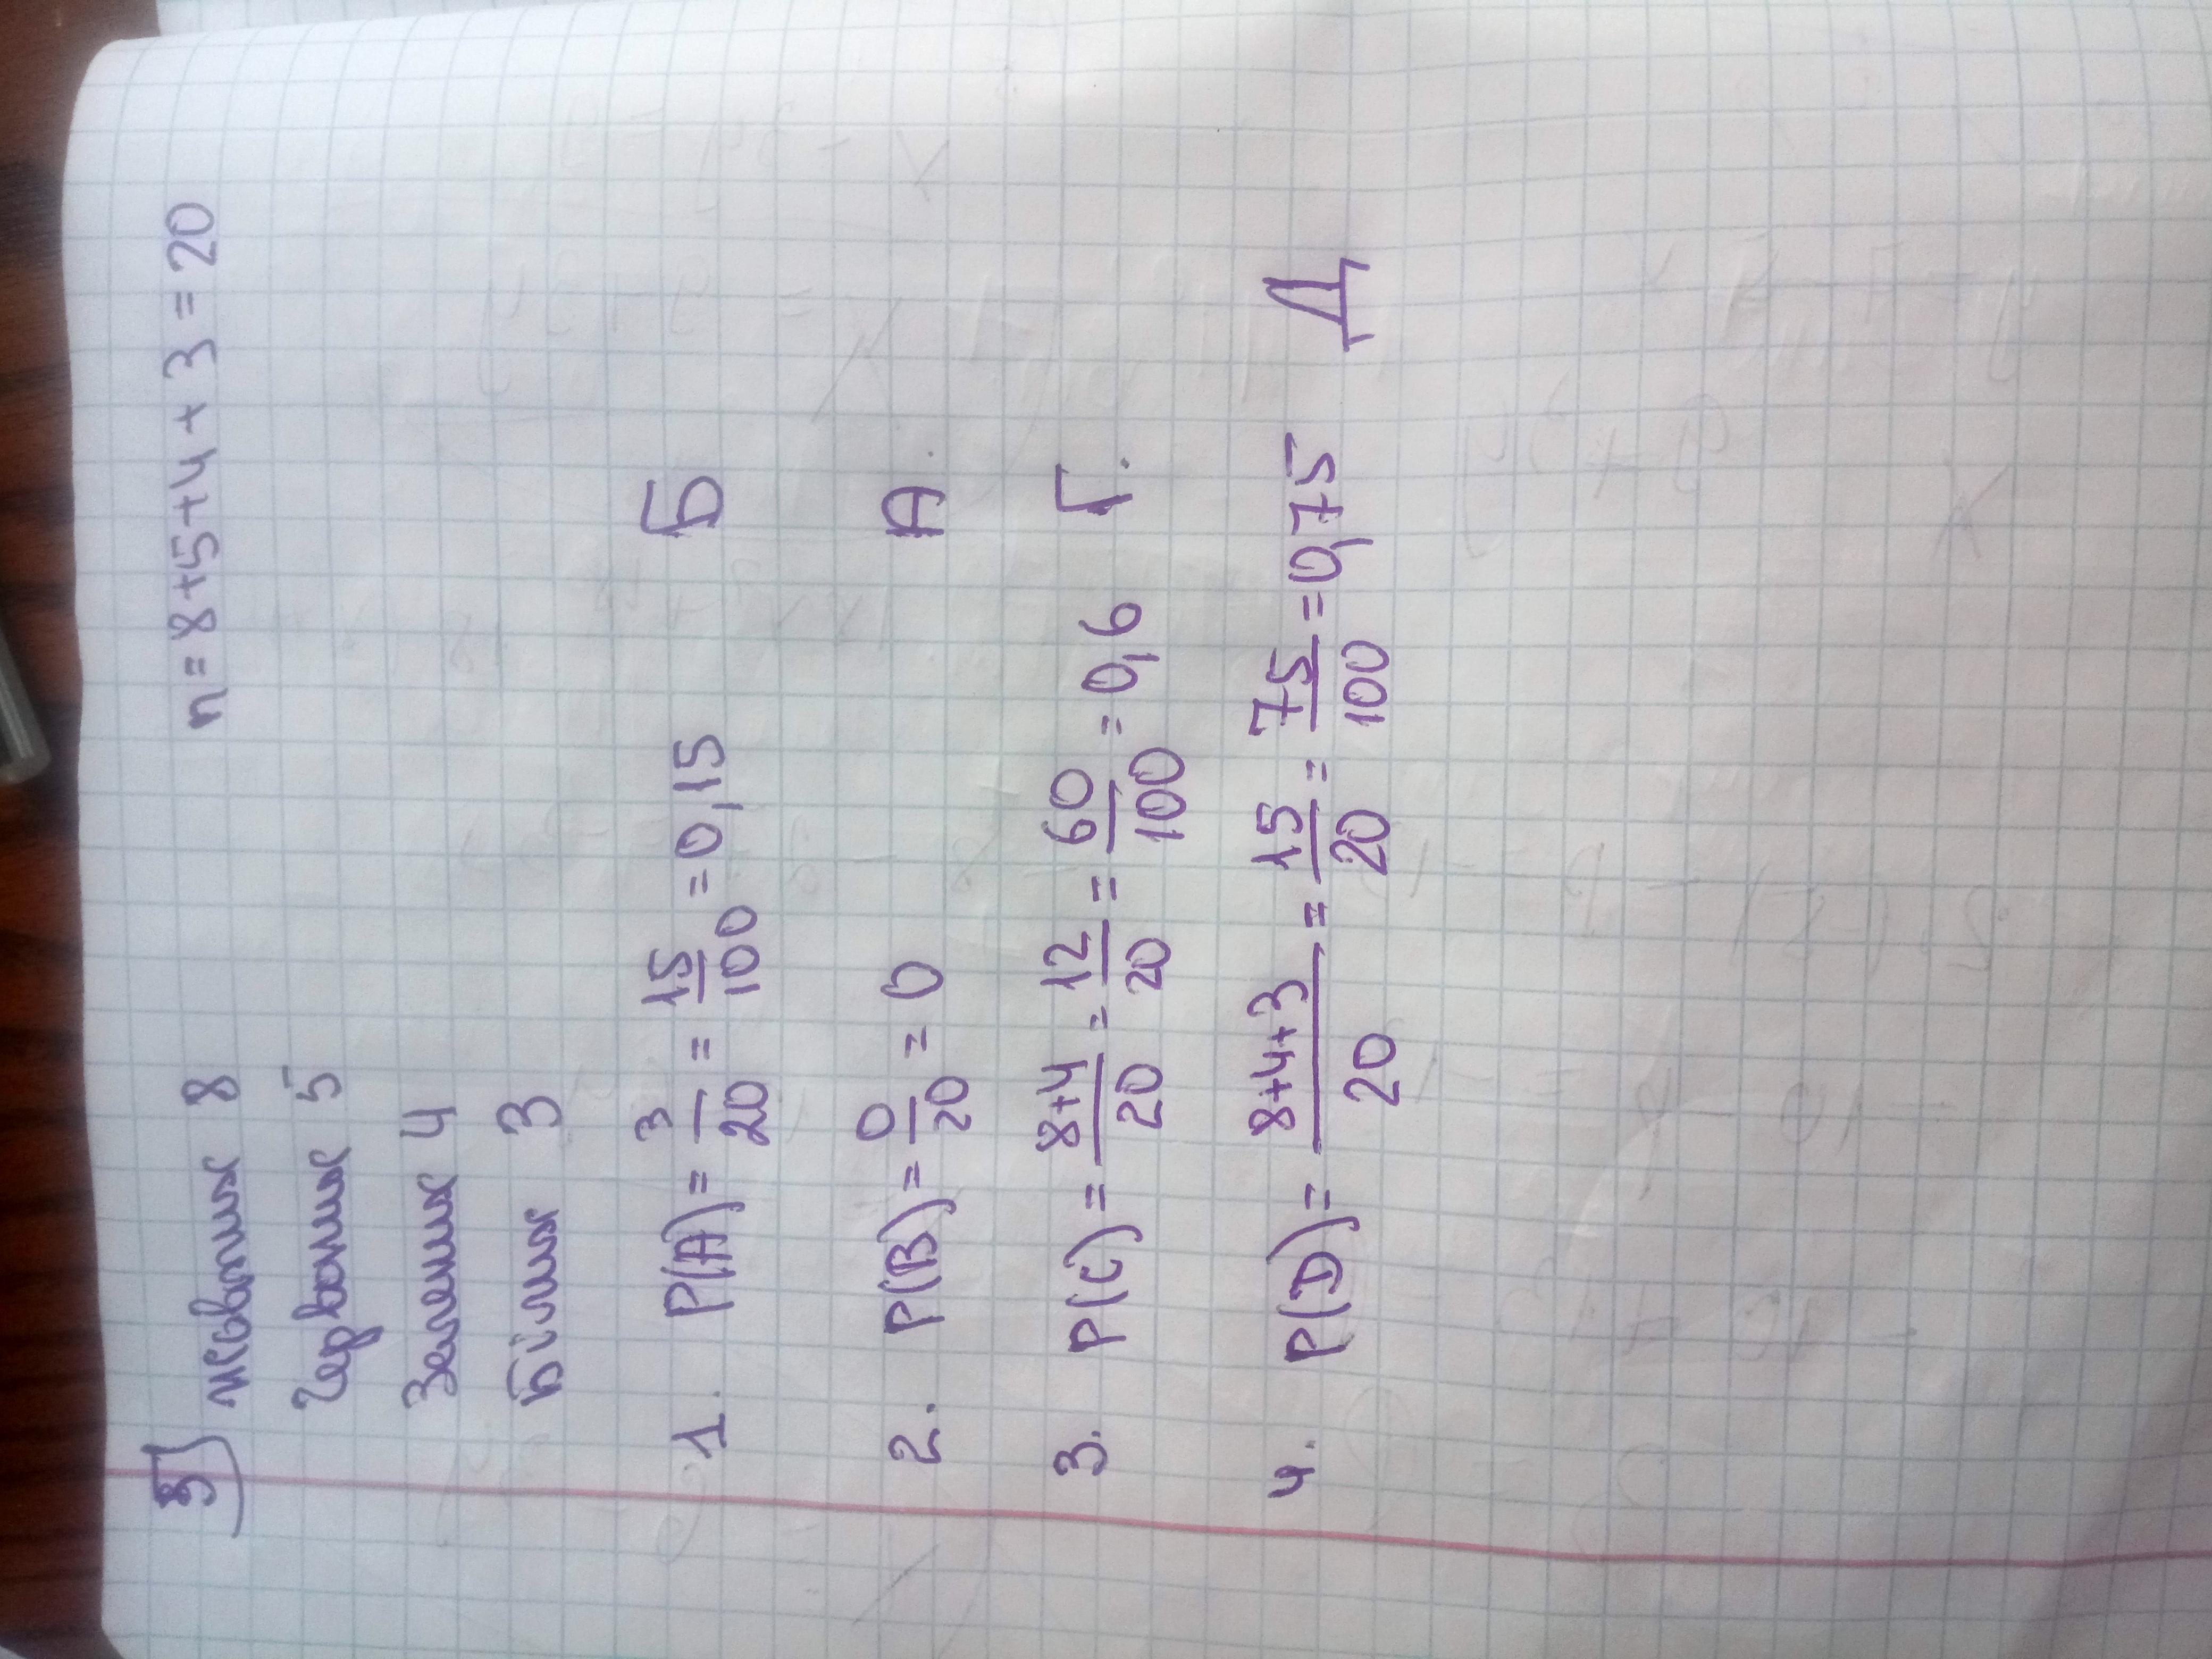 5) жовтих 8 n = 8+5+4+3 = 20
червоних 5
Зелених 4
Білих 3
1. P(A) = 3/20 = 15/100 = 0,15 Б
2. P(B) = 0/20 = 0 А.
3. P(C) = 8+4/20 = 12/20 = 60/100 = 0,6 Г.
4. P(D) = 8+4+3/20 = 15/20 = 75/100 = 0,75 Д